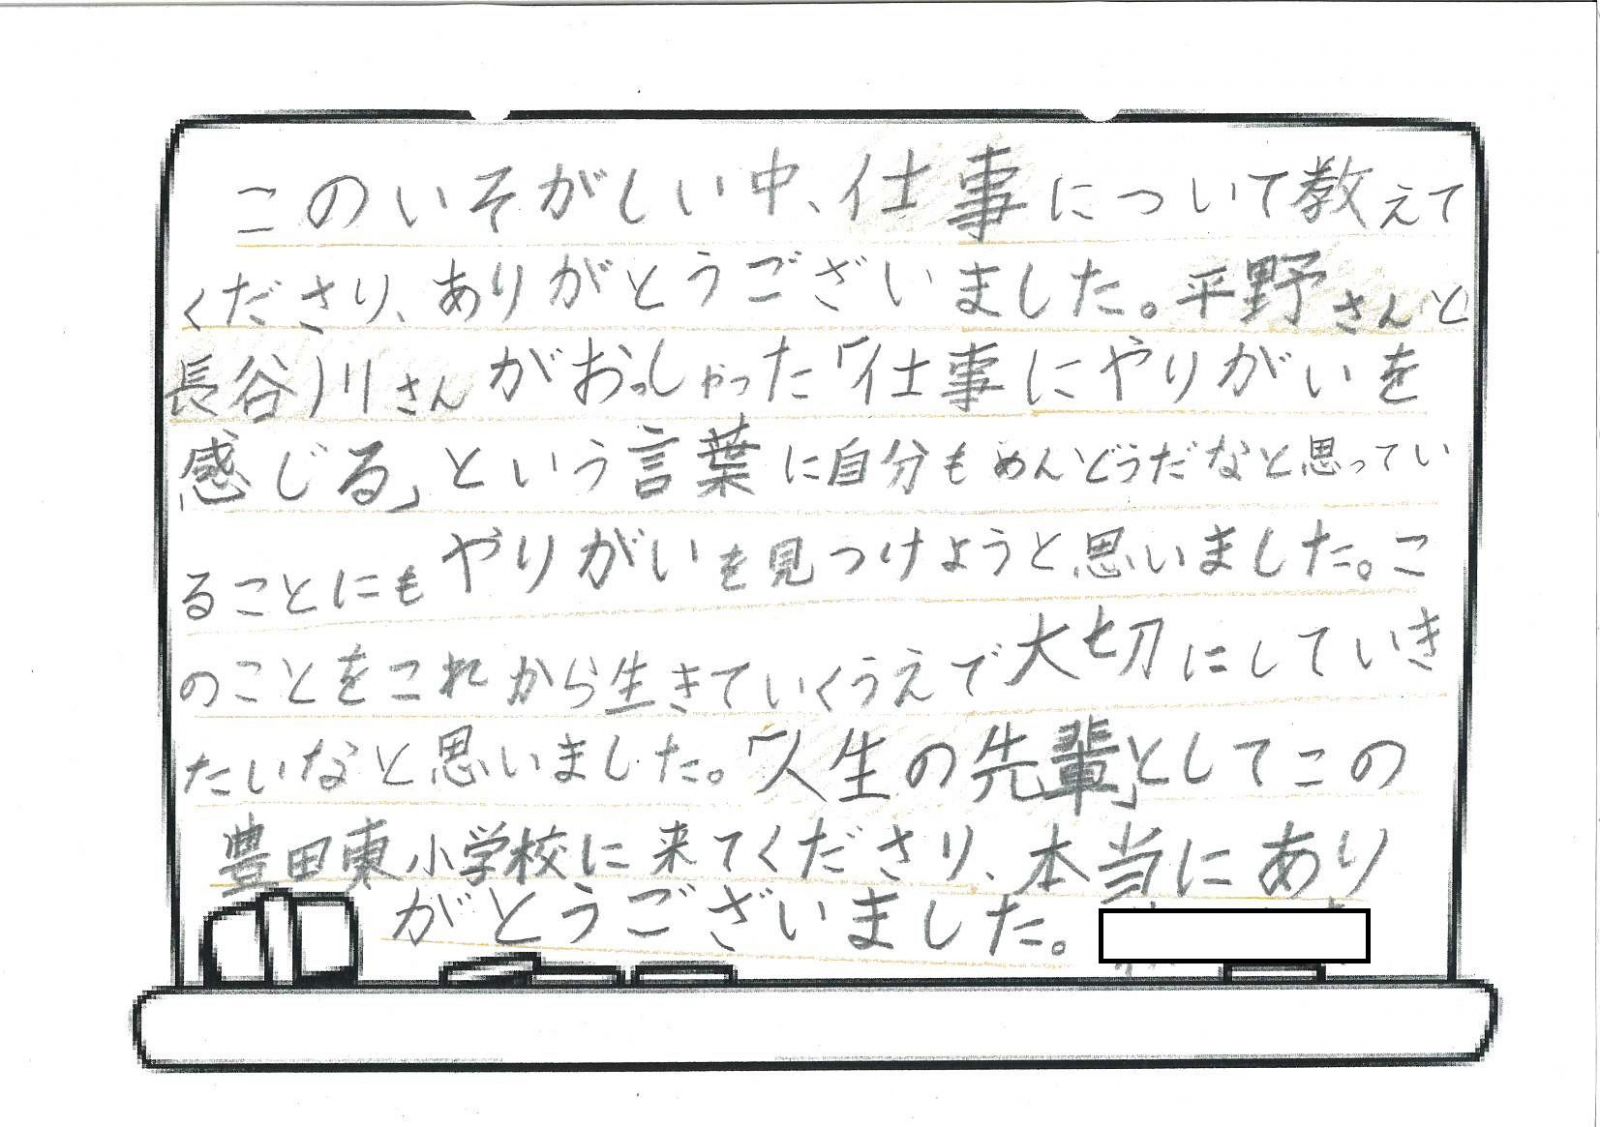 このいそがしい中、仕事について教えて
くださり、ありがとうございました。平野さんと
長谷川さんがおっしゃった「仕事にやりがいを
感じる」という言葉に自分もめんどうだなと思ってい
ることにもやりがいを見つけようと思いました。こ
のことをこれから生きていくうえで大切にしていき
たいなと思いました。「人生の先輩」としてこの
豊田東小学校に来てくださり、本当にあり
がとうございました。